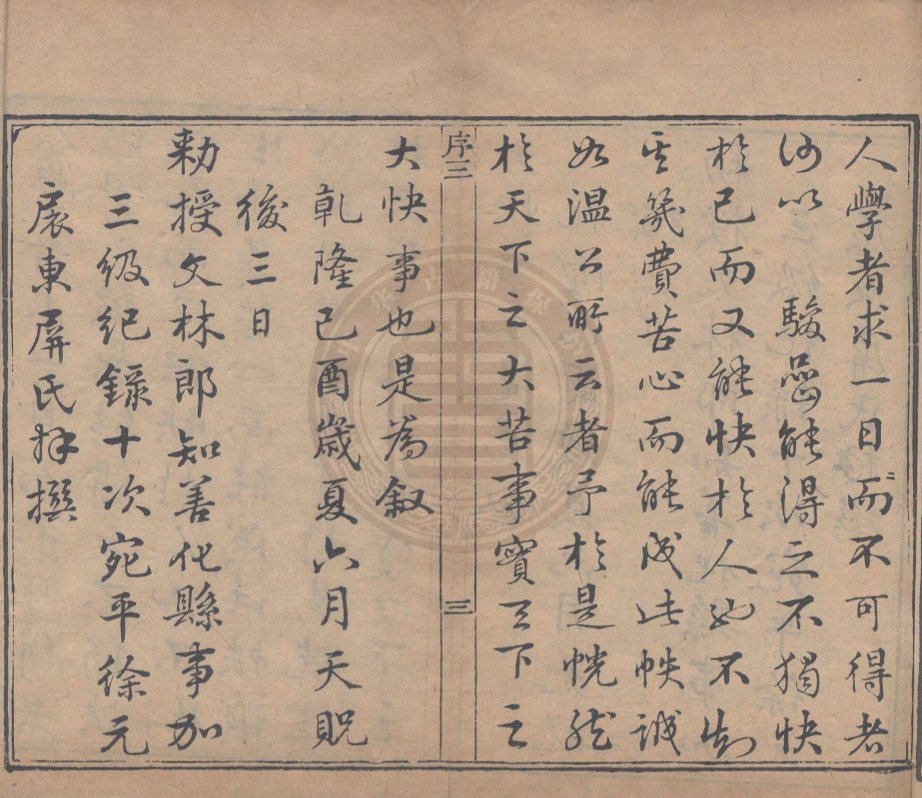 人學者求一日而不可得者
何以 駿嵒能得之不獨快
於己而又能快於人也不知
其幾費苦心而能成此帙誠
如溫公所云者予於是恍然
於天下之大苦事實天下之
序三
三
大快事也是為叙
乾隆己酉歲夏六月天貺
後三日
勅授文林郎知善化縣事加
三級紀錄十次宛平徐元
扆東屏氏拜撰